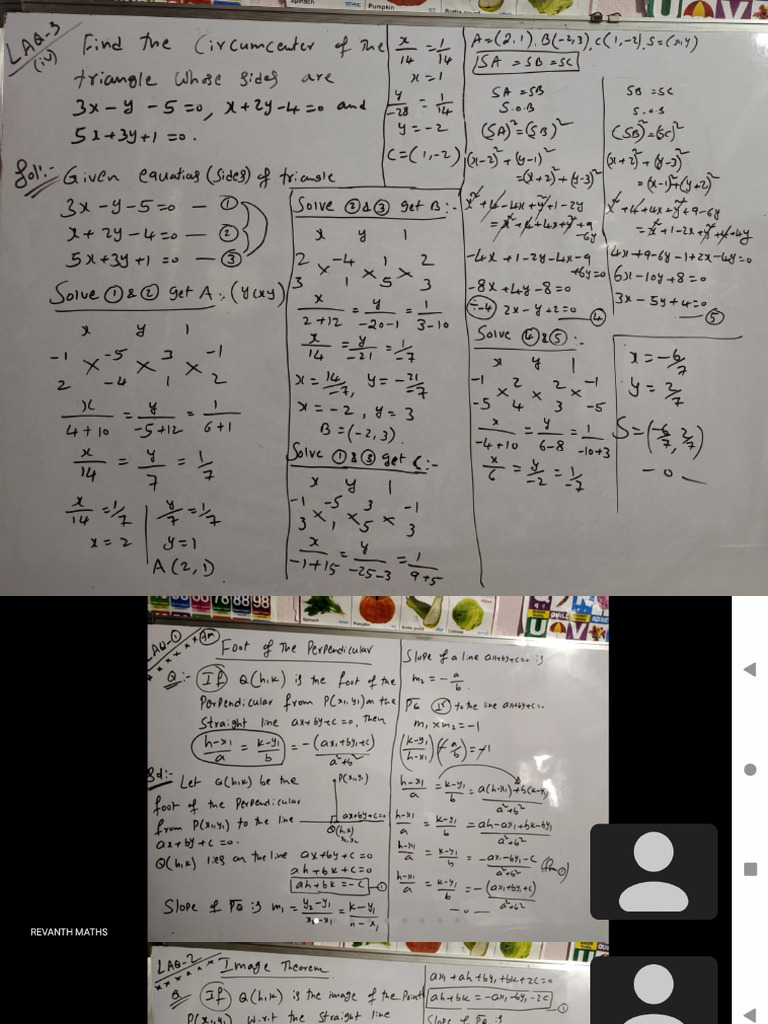 LAQ-3
(iv)
Find the Circumcenter of the
triangle whose sides are
3x-y-5=0, x+2y-4=0 and
5x+3y+1=0.
Sol:- Given equations (sides) of triangle
3x-y-5=0 — ①
x+2y-4=0 — ②
5x+3y+1=0 — ③
Solve ① & ② get A:-
x y 1
-1 -5 3 -1
2 -4 1 2
x/(4+10) = y/(-5+12) = 1/(6+1)
x/14 = y/7 = 1/7
x/14 = 1/7 y/7 = 1/7
x=2 y=1
A(2,1)
Solve ② & ③ get B:-
x y 1
2 -4 1 2
3 1 5 3
x/(2+12) = y/(-20-1) = 1/(3-10)
x/14 = y/-21 = 1/-7
x = 14/-7, y = -21/-7
x=-2, y=3
B=(-2,3)
Solve ① & ③ get C:-
x y 1
-1 -5 3 -1
3 1 5 3
x/(-1+15) = y/(-25-3) = 1/(9+5)
x/14 = 1/14
x=1
y/-28 = 1/14
y=-2
C=(1,-2)
A=(2,1), B(-2,3), C(1,-2), S=(x,y)
SA = SB = SC
SA = SB
S.O.B
(SA)²=(SB)²
(x-2)²+(y-1)²
=(x+2)²+(y-3)²
x²+4-4x+y²+1-2y
=x²+4+4x+y²+9
-6y
-4x+1-2y-4x-9
+6y=0
-8x+4y-8=0
÷-4 2x-y+2=0 ④
SB = SC
S.O.S
(SB)²=(SC)²
(x+2)²+(y-3)²
=(x-1)²+(y+2)²
x²+4+4x+y²+9-6y
=x²+1-2x+y²+4+4y
4x+9-6y-1+2x-4y=0
6x-10y+8=0
3x-5y+4=0
— ⑤
Solve ④ & ⑤:-
x y 1
-1 2 2 -1
-5 4 3 -5
x/(-4+10) = y/(6-8) = 1/(-10+3)
x/6 = y/-2 = 1/-7
x=-6/7
y=2/7
S=(-6/7, 2/7)
-0-
LAQ-①
Foot of the Perpendicular
Q:- If Q(h,k) is the foot of the
Perpendicular from P(x₁,y₁) on the
Straight line ax+by+c=0, then
(h-x₁)/a = (k-y₁)/b = -(ax₁+by₁+c)/(a²+b²)
Sol:- Let Q(h,k) be the
foot of the Perpendicular
from P(x₁,y₁) to the line
ax+by+c=0.
P(x₁,y₁)
ax+by+c=0
Q(h,k)
x₂,y₂
Q(h,k) lies on the line ax+by+c=0
ah+bk+c=0
ah+bk=-c — ①
Slope of PQ is m₁ = (y₂-y₁)/(x₂-x₁) = (k-y₁)/(h-x₁)
Slope of a line ax+by+c=0 is
m₂ = -a/b
PQ ⊥r to the line ax+by+c=0
m₁×m₂=-1
((k-y₁)/(h-x₁))(-a/b) = -1
(h-x₁)/a = (k-y₁)/b = (a(h-x₁)+b(k-y₁))/(a²+b²)
(h-x₁)/a = (k-y₁)/b = (ah-ax₁+bk-by₁)/(a²+b²)
(h-x₁)/a = (k-y₁)/b = (-ax₁-by₁-c)/(a²+b²) (from ①)
(h-x₁)/a = (k-y₁)/b = -(ax₁+by₁+c)/(a²+b²)
-0-
REVANTH MATHS
LAQ-2
Image Theorem
Q If Q(h,k) is the image of the Point
P(x₁,y₁) w.r.t the Straight line
ax₁+ah+by₁+bk+2c=0
ah+bk=-ax₁-by₁-2c ①
Slope of PQ is